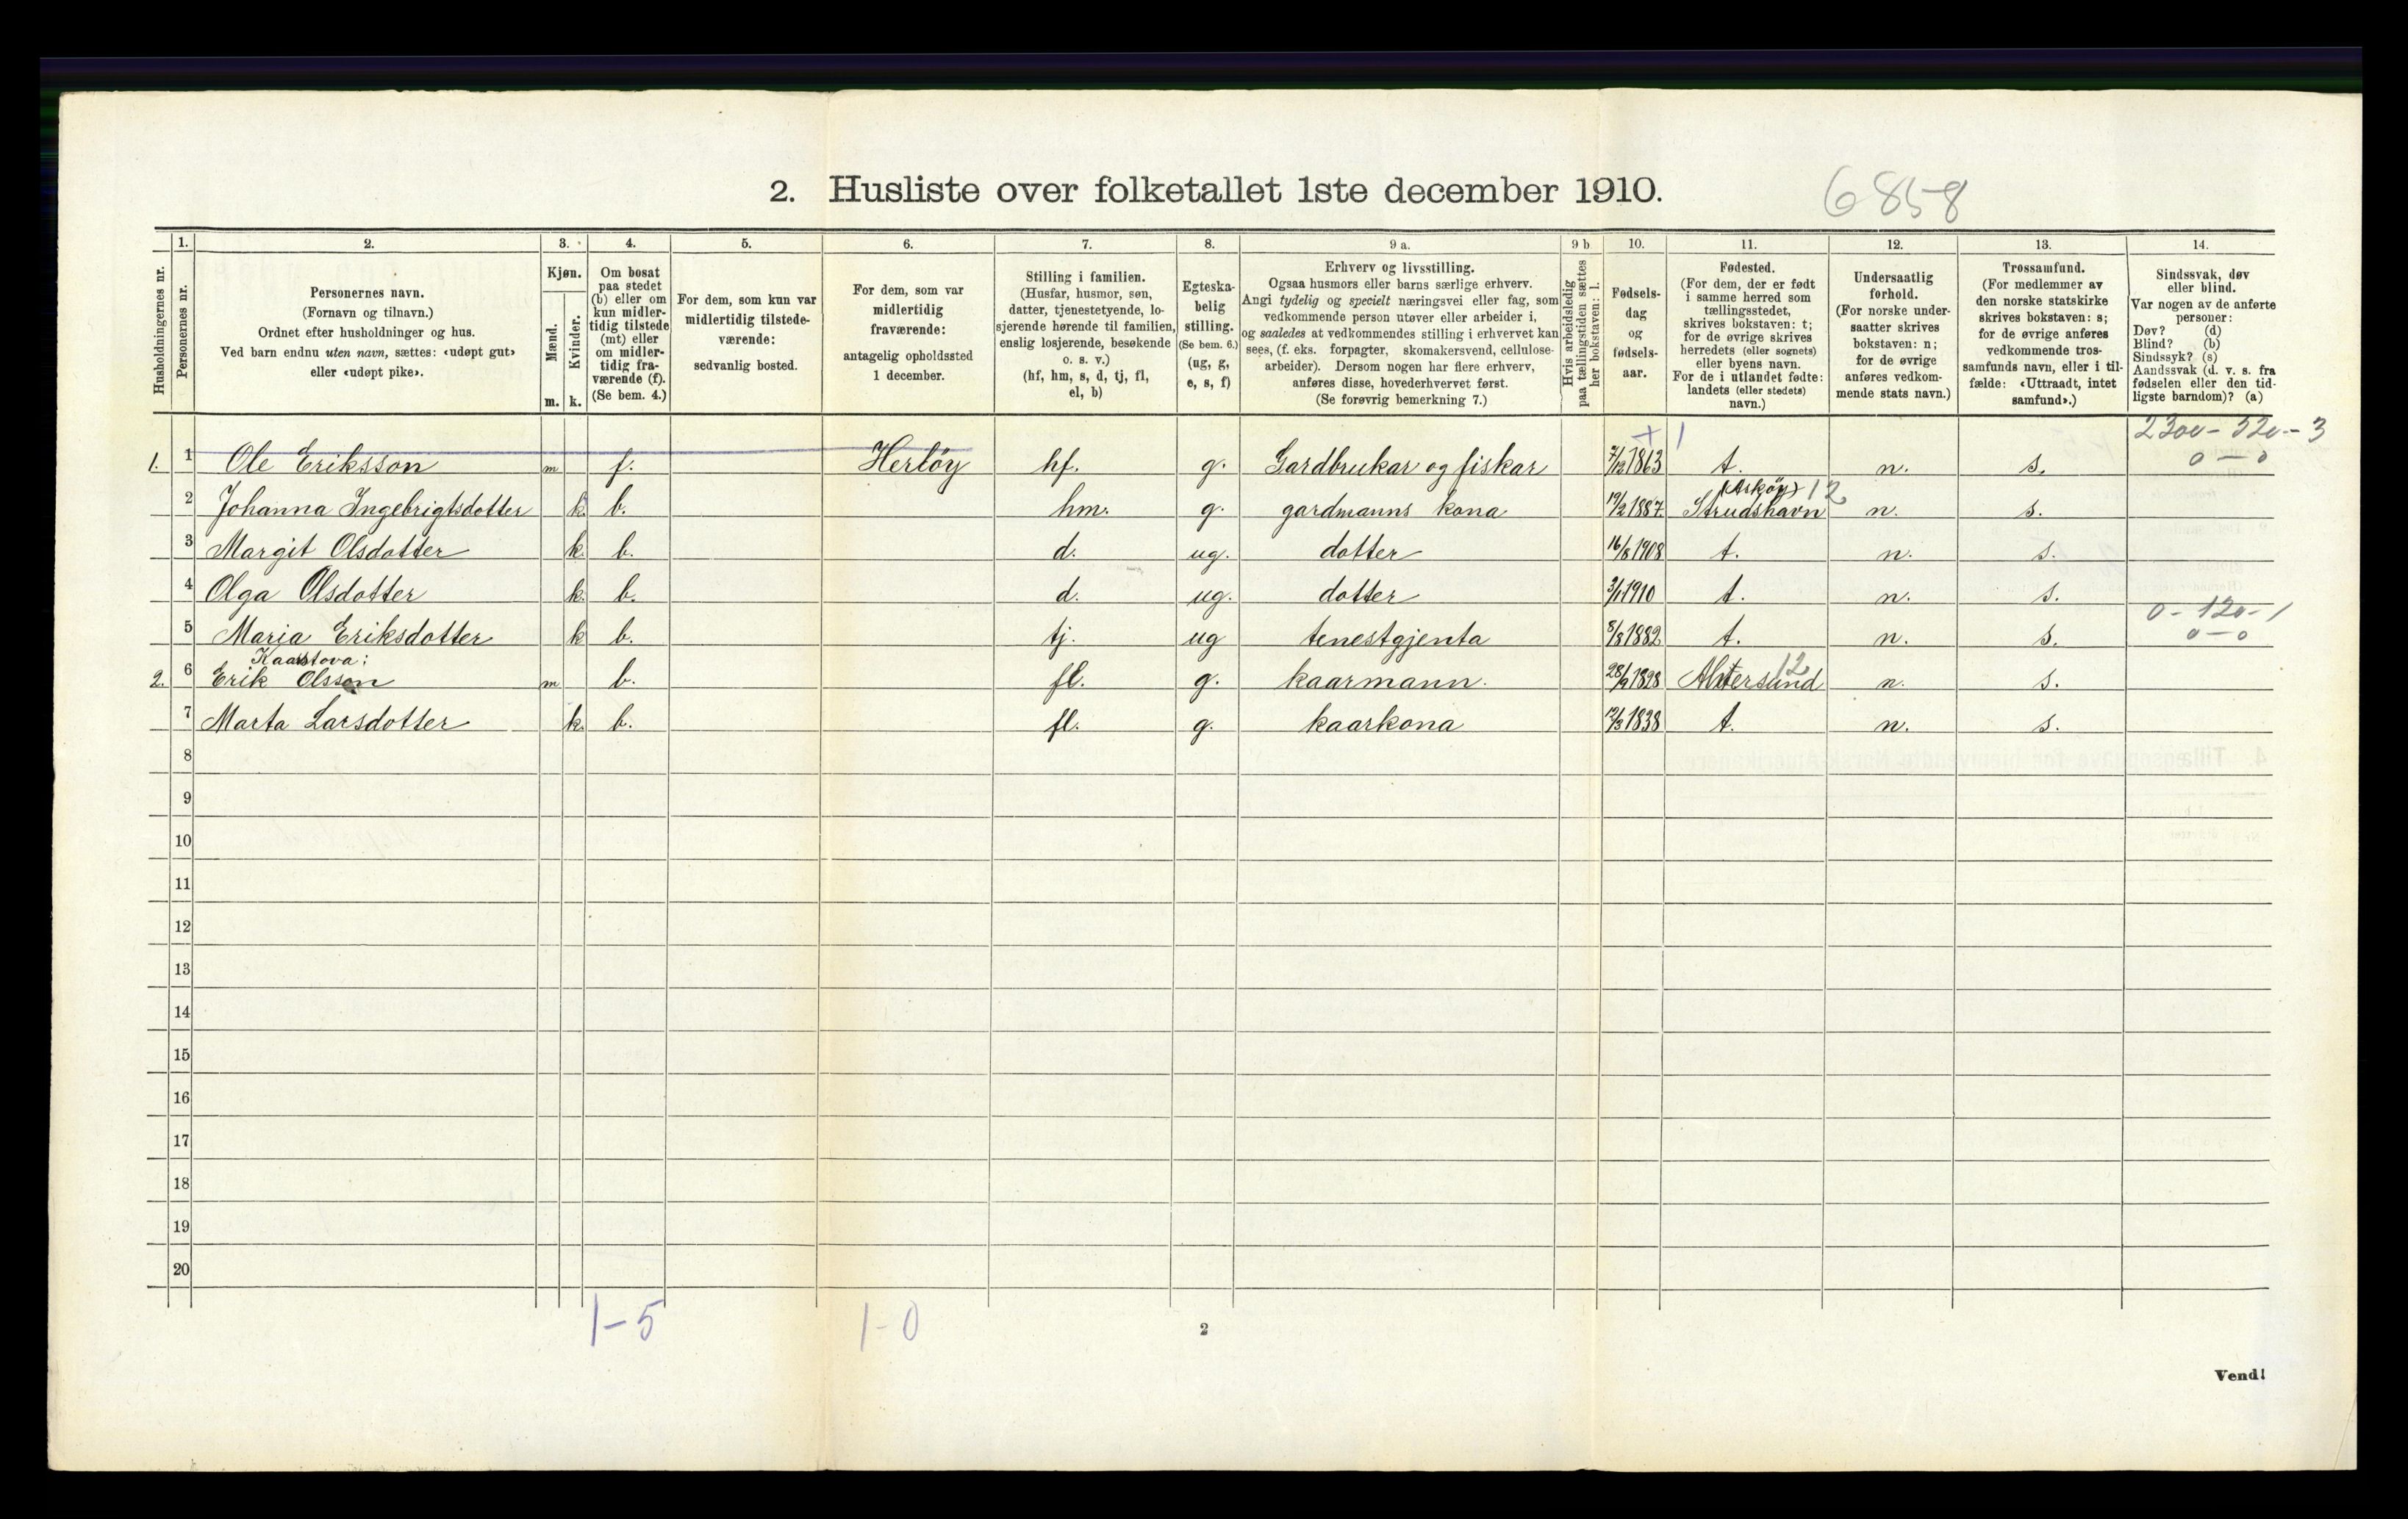 2. Husliste over folketallet 1ste december 1910. 6858
Husholdningernes nr.
1. Personernes nr.
2. Personernes navn. (Fornavn og tilnavn.) Ordnet efter husholdninger og hus. Ved barn endnu uten navn, sættes: «udøpt gut» eller «udøpt pike».
3. Kjøn. Mænd. m. Kvinder. k.
4. Om bosat paa stedet (b) eller om kun midlertidig tilstede (mt) eller om midlertidig fraværende (f). (Se bem. 4.)
5. For dem, som kun var midlertidig tilstedeværende: sedvanlig bosted.
6. For dem, som var midlertidig fraværende: antagelig opholdssted 1 december.
7. Stilling i familien. (Husfar, husmor, søn, datter, tjenestetyende, losjerende hørende til familien, enslig losjerende, besøkende o. s. v.) (hf, hm, s, d, tj, fl, el, b)
8. Egteskabelig stilling. (Se bem. 6.) (ug, g, e, s, f)
9 a. Erhverv og livsstilling. Ogsaa husmors eller barns særlige erhverv. Angi tydelig og specielt næringsvei eller fag, som vedkommende person utøver eller arbeider i, og saaledes at vedkommendes stilling i erhvervet kan sees, (f. eks. forpagter, skomakersvend, cellulosearbeider). Dersom nogen har flere erhverv, anføres disse, hovederhvervet først. (Se forøvrig bemerkning 7.)
9 b Hvis arbeidsledig paa tællingstiden sættes her bokstaven: l.
10. Fødselsdag og fødselsaar.
11. Fødested. (For dem, der er født i samme herred som tællingsstedet, skrives bokstaven: t; for de øvrige skrives herredets (eller sognets) eller byens navn. For de i utlandet fødte: landets (eller stedets) navn.)
12. Undersaatlig forhold. (For norske undersaatter skrives bokstaven: n; for de øvrige anføres vedkommende stats navn.)
13. Trossamfund. (For medlemmer av den norske statskirke skrives bokstaven: s; for de øvrige anføres vedkommende trossamfunds navn, eller i tilfælde: «Uttraadt, intet samfund».)
14. Sindssvak, døv eller blind. Var nogen av de anførte personer: Døv? (d) Blind? (b) Sindssyk? (s) Aandssvak (d. v. s. fra fødselen eller den tidligste barndom)? (a)
1. 1 Ole Eriksson m f. Herløy hf. g. Gardbrukar og fiskar 7/12 1863 t. n. s. 0 – 0
2 Johanna Ingebrigtsdotter k. b. hm. g. gardmanns kona 19/2 1887. (Askøy) 12 Strudshavn n. s.
3 Margit Olsdotter k. b. d. ug. dotter 16/8 1908 t. n. s.
4 Olga Olsdotter k. b. d. ug. dotter 3/1 1910 t. n. s.
0 – 120 – 1
5 Maria Eriksdotter k b. tj. ug tenestgjenta 8/8 1882 t. n. s. 0 – 0
Kaarstova:
2. 6 Erik Olsson m b. fl. g. kaarmann. 28/9 1828 12 n. s.
7 Marta Larsdotter k. b. fl. g. kaarkona 12/3 1838 t. n. s.
8
9
10
11
12
13
14
15
16
17
18
19
20
1 – 5 1 – 0
2
Vend!